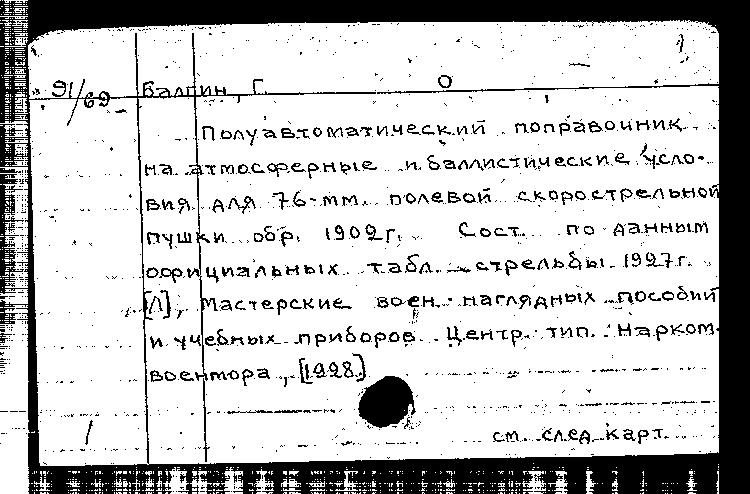 91/69 Балпин, Г. О
Полуавтоматический поправочник
на атмосферные и баллистические усло-
вия для 76-мм. полевой скорострельной
пушки обр. 1902 г. Сост. по данным
официальных табл. стрельбы 1927 г.
[Л], Мастерские воен. наглядных пособий
и учебных приборов Центр. тип. Нарком-
военмора, [1928]
1 см. след карт.